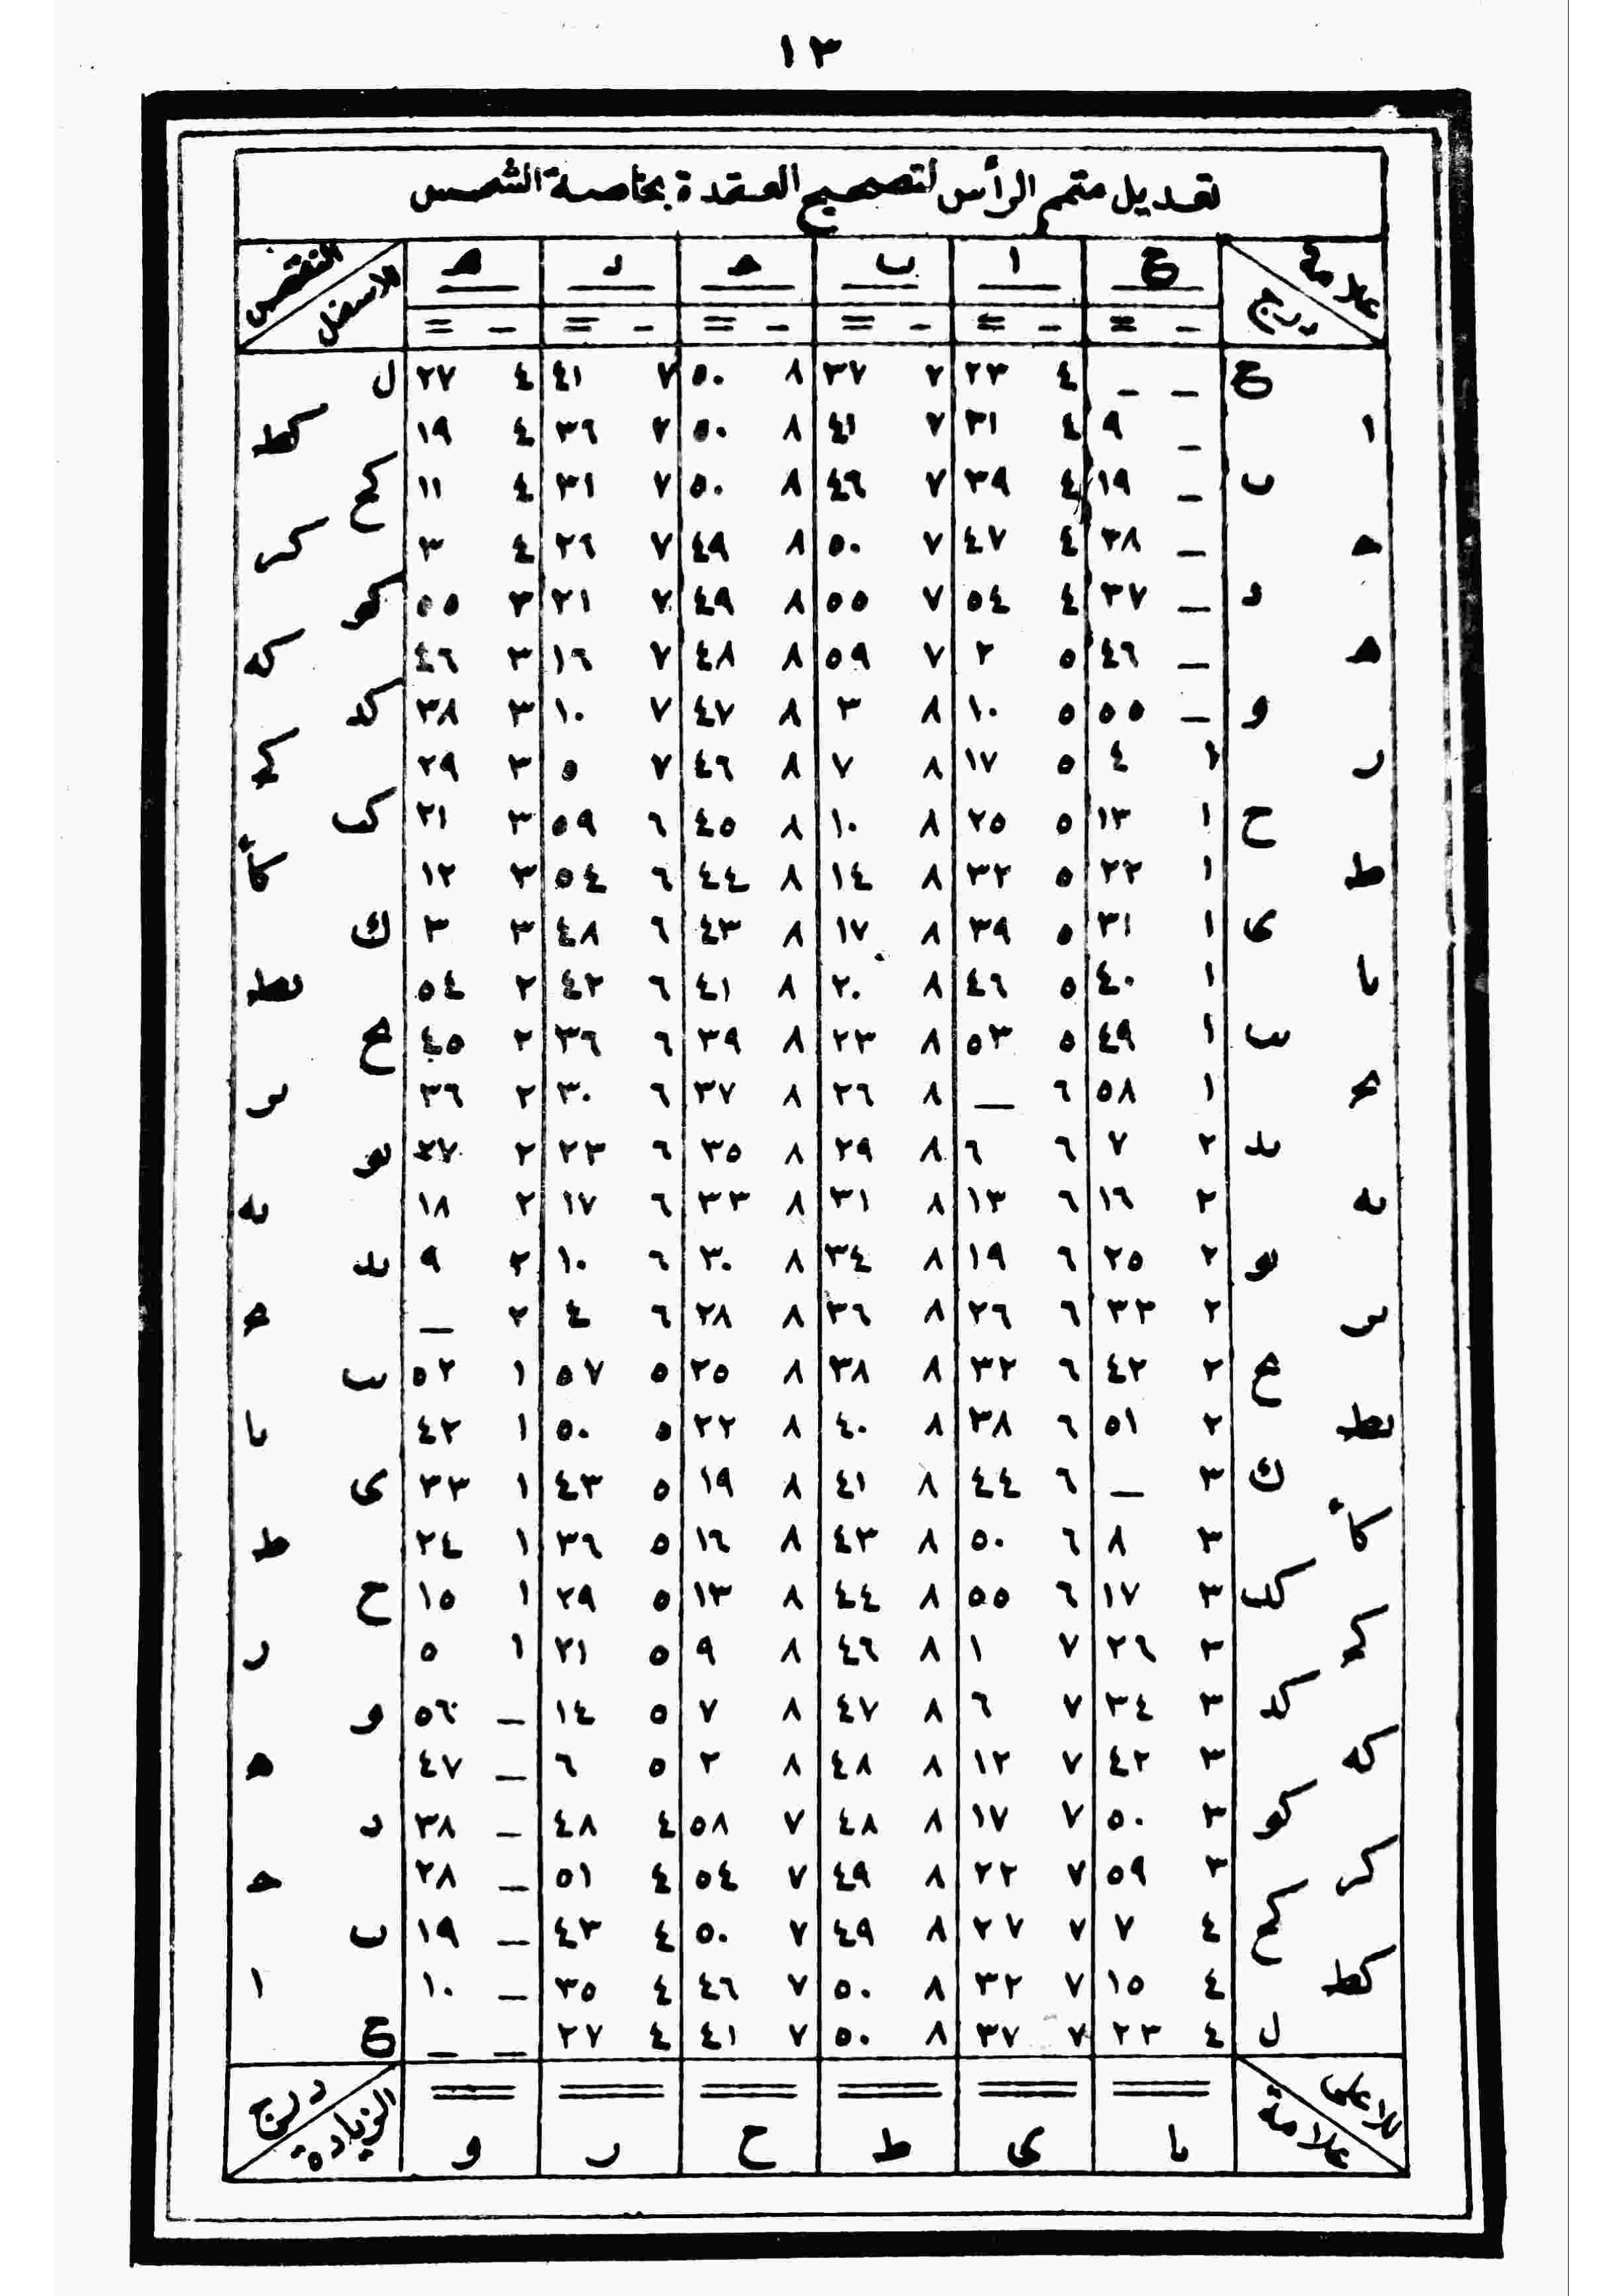 ١٣
تعديل متمم الرأس لتصحيح العقدة بخاصة الشمس
علامة درج ع ا ب ح د ه النقص للاسفل
ع _ _ ٤ ٢٣ ٧ ٣٧ ٨ ٥٠ ٧ ٤١ ٤ ٢٧ ل
ا _ ٩ ٤ ٣١ ٧ ٤١ ٨ ٥٠ ٧ ٣٦ ٤ ١٩ كط
ب _ ١٩ ٤ ٣٩ ٧ ٤٦ ٨ ٥٠ ٧ ٣١ ٤ ١١ كح
ح _ ٣٨ ٤ ٤٧ ٧ ٥٠ ٨ ٤٩ ٧ ٢٦ ٤ ٣ كر
د _ ٣٧ ٤ ٥٤ ٧ ٥٥ ٨ ٤٩ ٧ ٢١ ٣ ٥٥ كو
ه _ ٤٦ ٥ ٢ ٧ ٥٩ ٨ ٤٨ ٧ ١٦ ٣ ٤٦ كه
و _ ٥٥ ٥ ١٠ ٨ ٣ ٨ ٤٧ ٧ ١٠ ٣ ٣٨ كد
ر ١ ٤ ٥ ١٧ ٨ ٧ ٨ ٤٦ ٧ ٥ ٣ ٢٩ كح
ح ١ ١٣ ٥ ٢٥ ٨ ١٠ ٨ ٤٥ ٦ ٥٩ ٣ ٢١ كب
ط ١ ٢٢ ٥ ٣٢ ٨ ١٤ ٨ ٤٤ ٦ ٥٤ ٣ ١٢ كا
ى ١ ٣١ ٥ ٣٩ ٨ ١٧ ٨ ٤٣ ٦ ٤٨ ٣ ٣ ك
يا ١ ٤٠ ٥ ٤٦ ٨ ٢٠ ٨ ٤١ ٦ ٤٢ ٢ ٥٤ يط
يب ١ ٤٩ ٥ ٥٣ ٨ ٢٣ ٨ ٣٩ ٦ ٣٦ ٢ ٤٥ يح
يح ١ ٥٨ ٦ _ ٨ ٢٦ ٨ ٣٧ ٦ ٣٠ ٢ ٣٦ ير
يد ٢ ٧ ٦ ٦ ٨ ٢٩ ٨ ٣٥ ٦ ٢٣ ٢ ٢٧ يو
يه ٢ ١٦ ٦ ١٣ ٨ ٣١ ٨ ٣٣ ٦ ١٧ ٢ ١٨ يه
يو ٢ ٢٥ ٦ ١٩ ٨ ٣٤ ٨ ٣٠ ٦ ١٠ ٢ ٩ يد
ير ٢ ٣٣ ٦ ٢٦ ٨ ٣٦ ٨ ٢٨ ٦ ٤ ٢ _ يح
يح ٢ ٤٢ ٦ ٣٢ ٨ ٣٨ ٨ ٢٥ ٥ ٥٧ ١ ٥٢ يب
يط ٢ ٥١ ٦ ٣٨ ٨ ٤٠ ٨ ٢٢ ٥ ٥٠ ١ ٤٢ يا
ك ٣ _ ٦ ٤٤ ٨ ٤١ ٨ ١٩ ٥ ٤٣ ١ ٣٣ ى
كا ٣ ٨ ٦ ٥٠ ٨ ٤٣ ٨ ١٦ ٥ ٣٦ ١ ٢٤ ط
كب ٣ ١٧ ٦ ٥٥ ٨ ٤٤ ٨ ١٣ ٥ ٢٩ ١ ١٥ ح
كح ٣ ٢٦ ٧ ١ ٨ ٤٦ ٨ ٩ ٥ ٢١ ١ ٥ ر
كد ٣ ٣٤ ٧ ٦ ٨ ٤٧ ٨ ٧ ٥ ١٤ _ ٥٦ و
كه ٣ ٤٢ ٧ ١٢ ٨ ٤٨ ٨ ٢ ٥ ٦ _ ٤٧ ه
كو ٣ ٥٠ ٧ ١٧ ٨ ٤٨ ٧ ٥٨ ٤ ٤٨ _ ٣٨ د
كر ٣ ٥٩ ٧ ٢٢ ٨ ٤٩ ٧ ٥٤ ٤ ٥١ _ ٢٨ ح
كح ٤ ٧ ٧ ٢٧ ٨ ٤٩ ٧ ٥٠ ٤ ٤٣ _ ١٩ ب
كط ٤ ١٥ ٧ ٣٢ ٨ ٥٠ ٧ ٤٦ ٤ ٣٥ _ ١٠ ا
ل ٤ ٢٣ ٧ ٣٧ ٨ ٥٠ ٧ ٤١ ٤ ٢٧ _ _ ع
للاعلى علامة يا ى ط ح ر و الزيادة درج